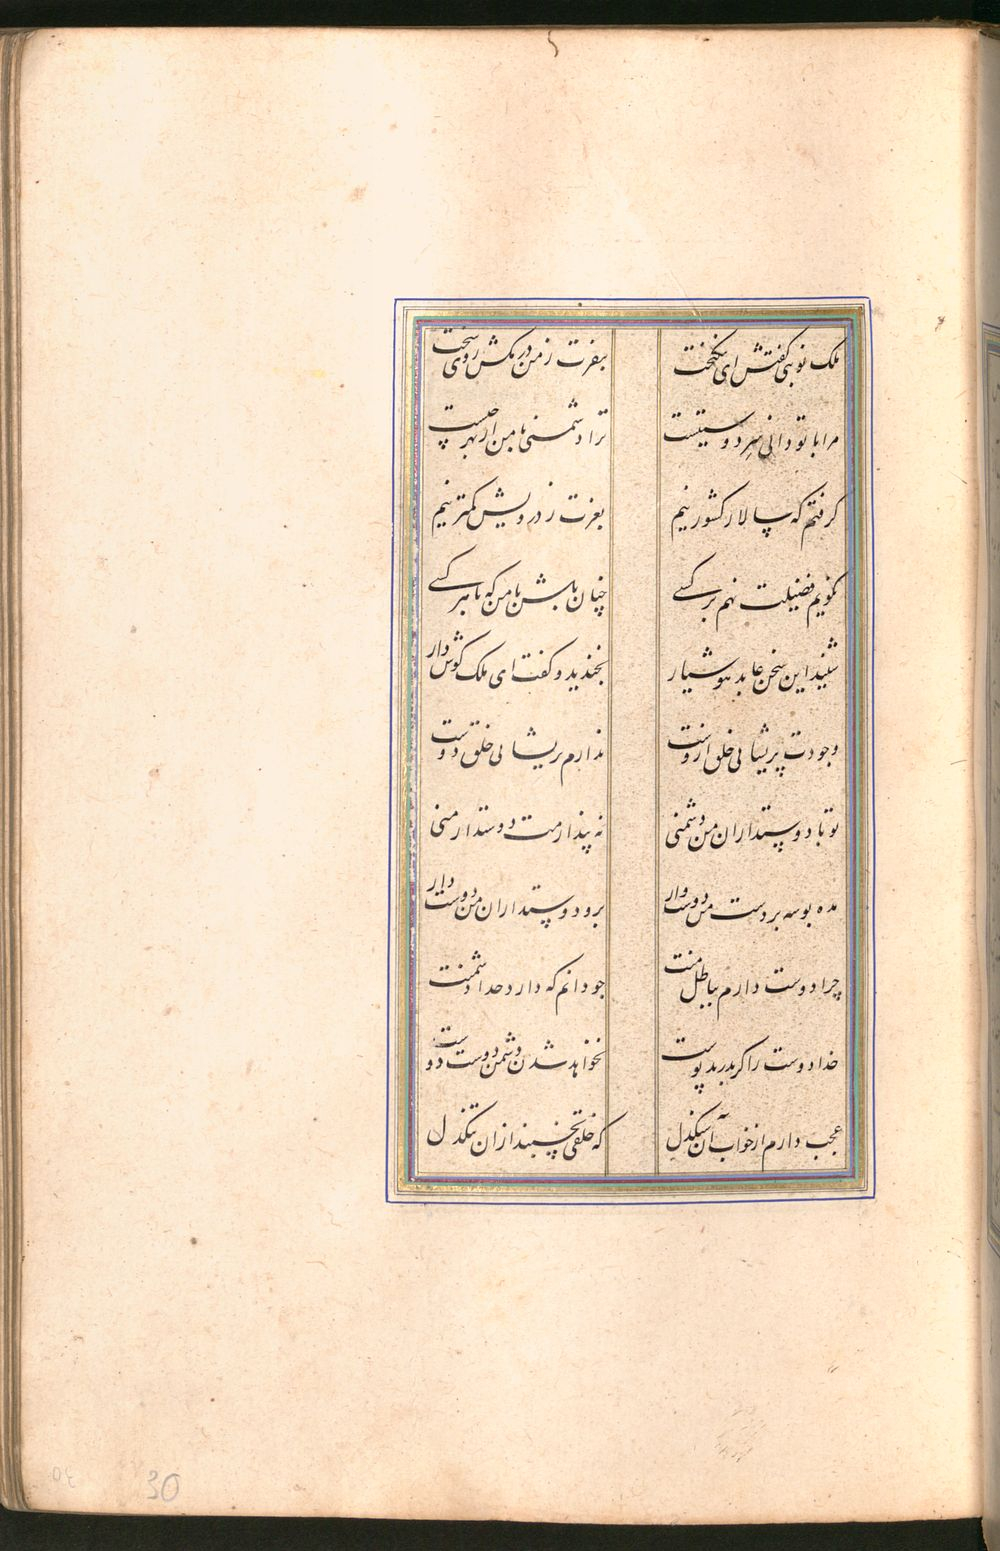 ملک نوبتی گفتش ای نیکبخت
بنفرت ز من درمکش روی سخت
مرا با تو دانی سر دوستیست
ترا دشمنی با من از بهر چیست
گرفتم که سالار کشور نیم
بعزت ز درویش کمتر نیم
نگویم فضیلت نهم بر کسی
چنان باش با من که با هر کسی
شنید این سخن عابد هوشیار
بخندید و گفت ای ملک گوش دار
وجودت پریشانی خلق ازوست
ندارم پریشانی خلق دوست
تو با دوستداران من دشمنی
نه پندارمت دوستدار منی
مده بوسه بر دست من دوست وار
برو دوستداران من دوست دار
چرا دوست دارم بباطل منت
جو دانم که دارد خدا دشمنت
خدا دوست را گر بدرند پوست
نخواهد شدن دشمن دوست دوست
عجب دارم از خواب آن سنگدل
که خلقی بخسبند ازان تنگدل
30